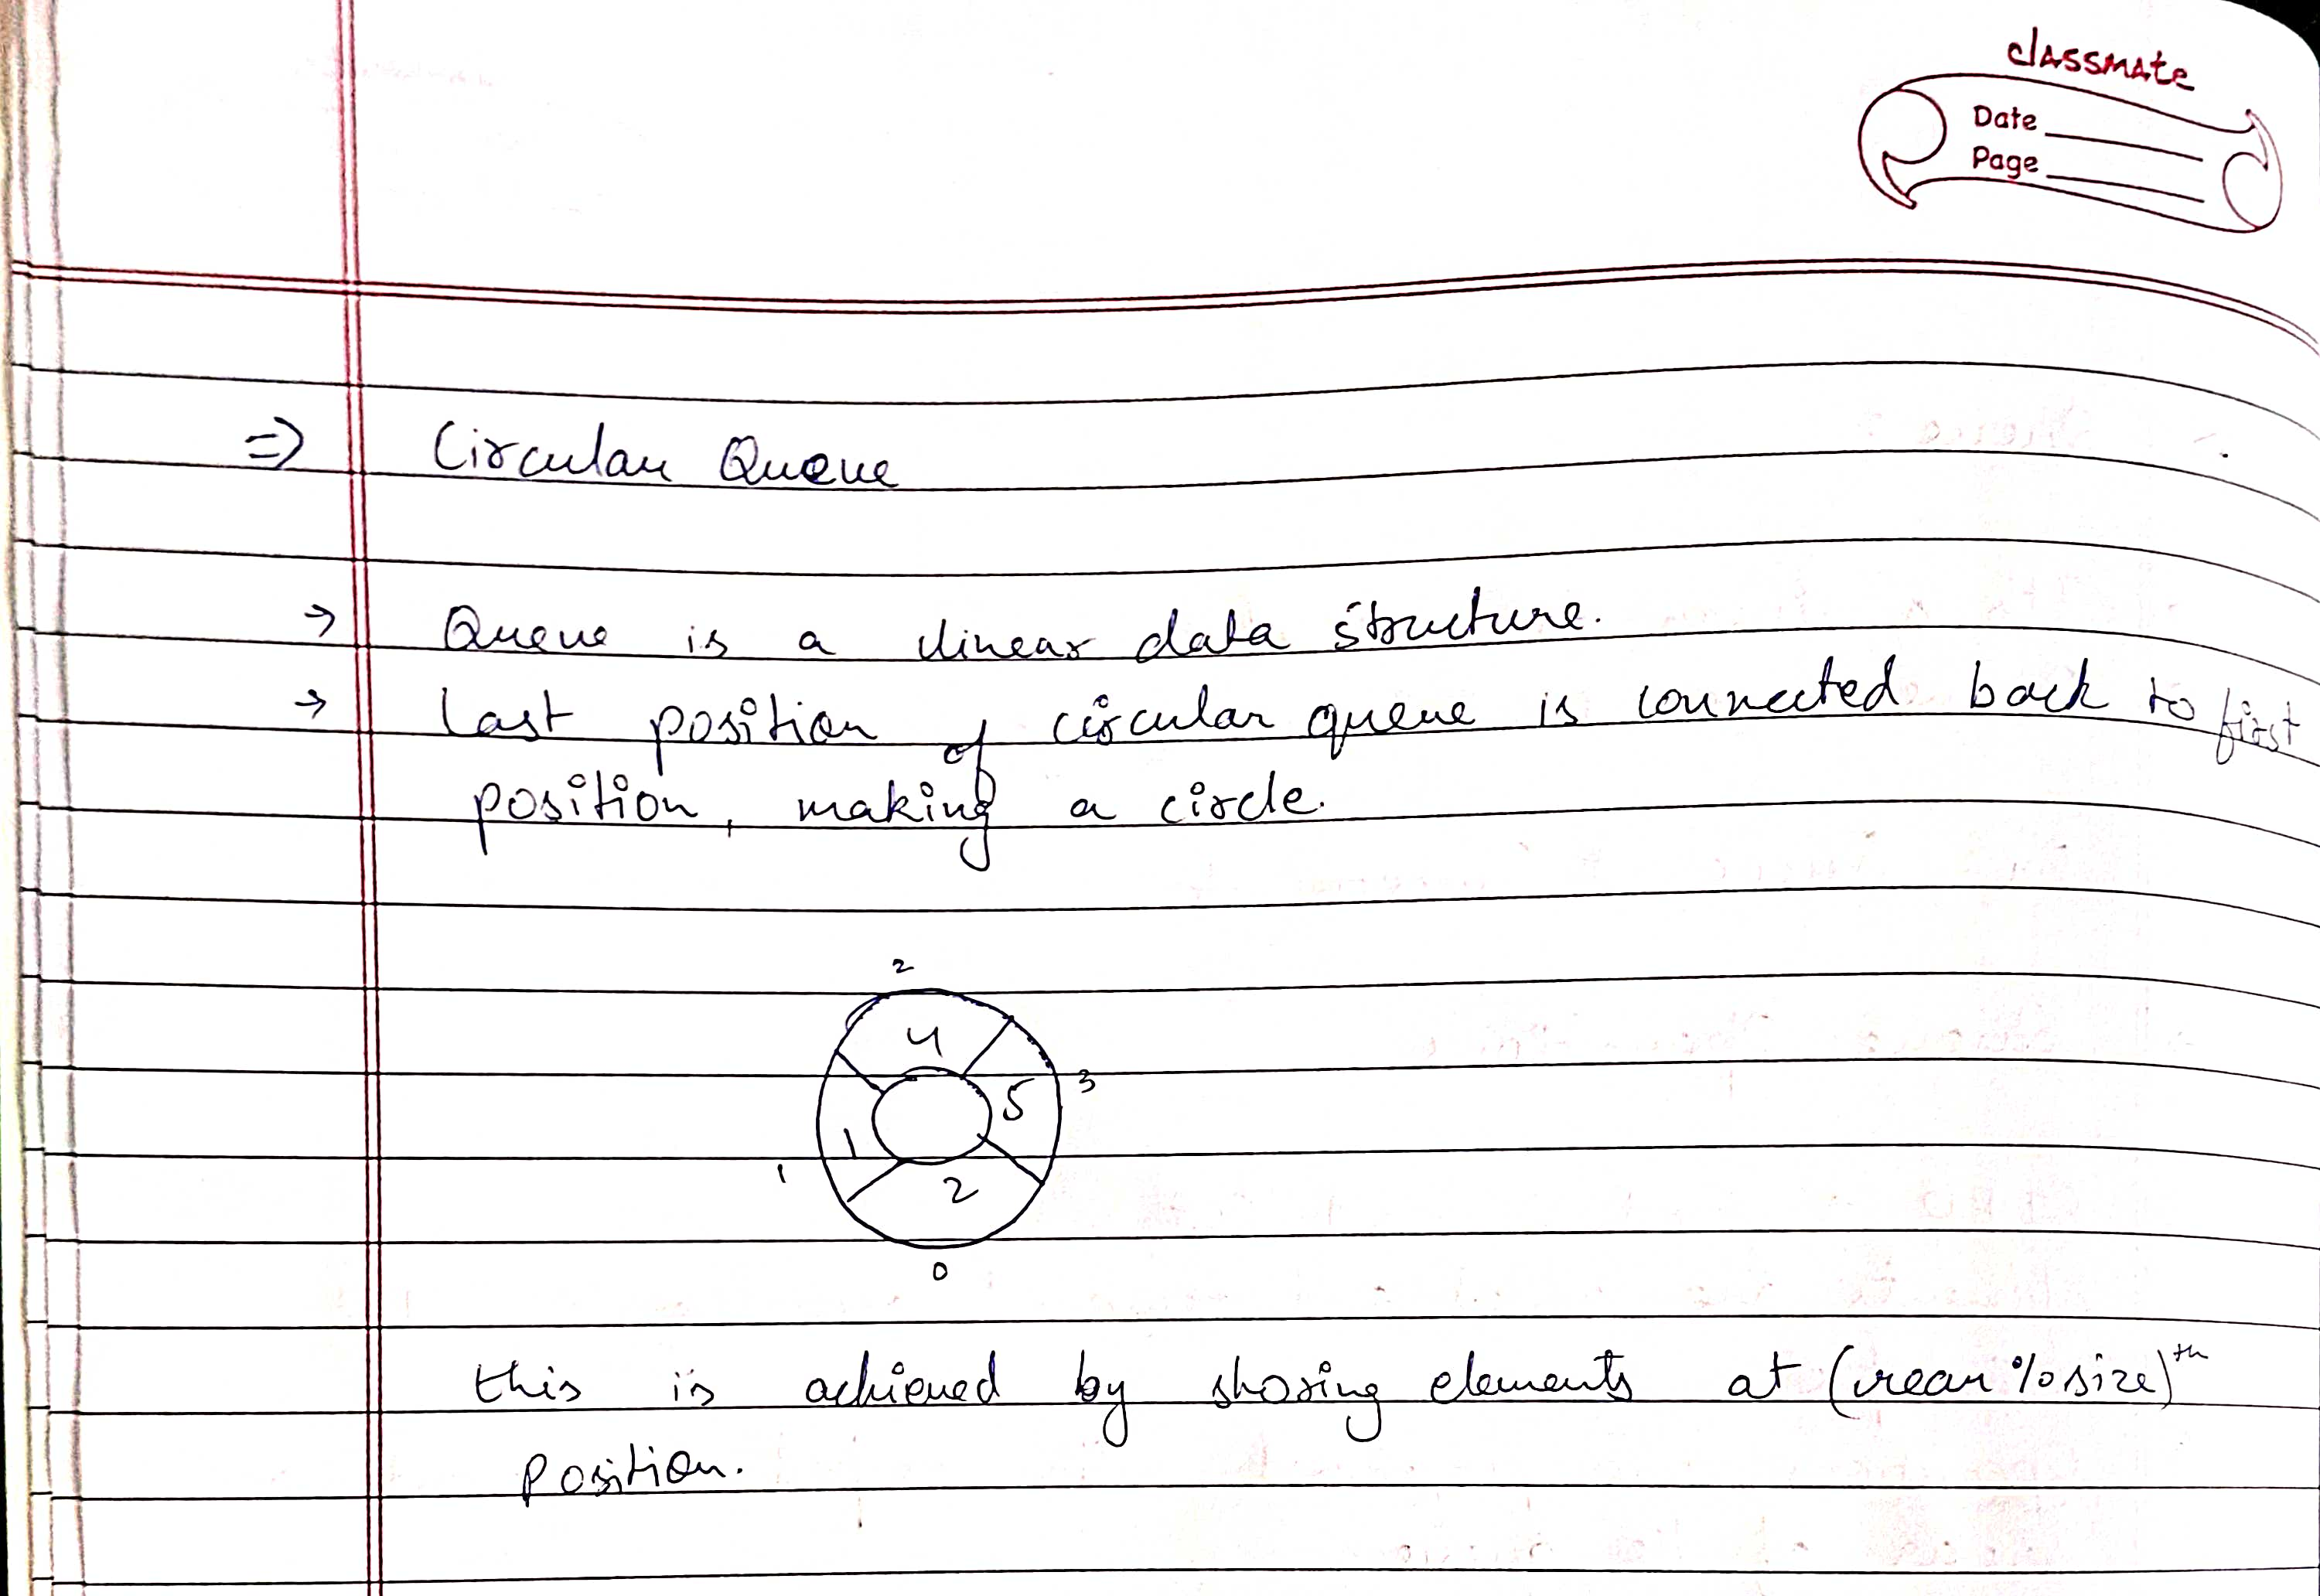 classmate
Date
Page
=> Circular Queue
→ Queue is a linear data structure.
→ Last position of circular queue is connected back to first
position, making a circle.
2
4
3
5
1
1
2
0
this is achieved by storing elements at (rear % size)th
position.